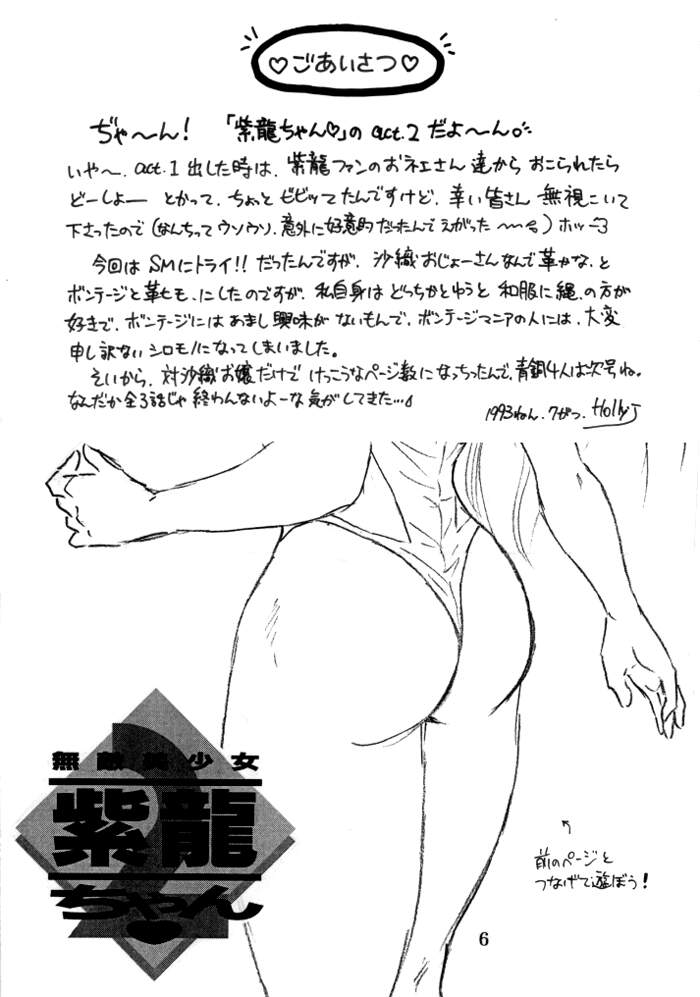 ♡ごあいさつ♡
ぢゃ〜ん! 「紫龍ちゃん♡」の act.2 だよ〜ん。
いや〜、act.1 出した時は、紫龍ファンのおネエさん達からおこられたら
どーしょー とかって、ちょっとビビッてたんですけど、幸い皆さん無視こいて
下さったので(なんちってウソウソ、意外に好意的だったんでえがった〜〜)ホッ〜3
今回はSMにトライ!!だったんですが、沙織おじょーさんなんで革かな、と
ボンテージと革ヒモ、にしたのですが、私自身はどっちかとゆうと和服に縄、の方が
好きで、ボンテージにはあまし興味がないもんで、ボンテージマニアの人には、大変
申し訳ないシロモノになってしまいました。
そいから、対沙織お嬢だけでけっこうなページ数になっちったんで、青銅4人は次号ね。
なんだか全3話じゃ終わんないよーな気がしてきた…
1993ねん.7がつ. Holly J
無敵美少女
2
紫龍
ちゃん
前のページと
つなげて遊ぼう!
6